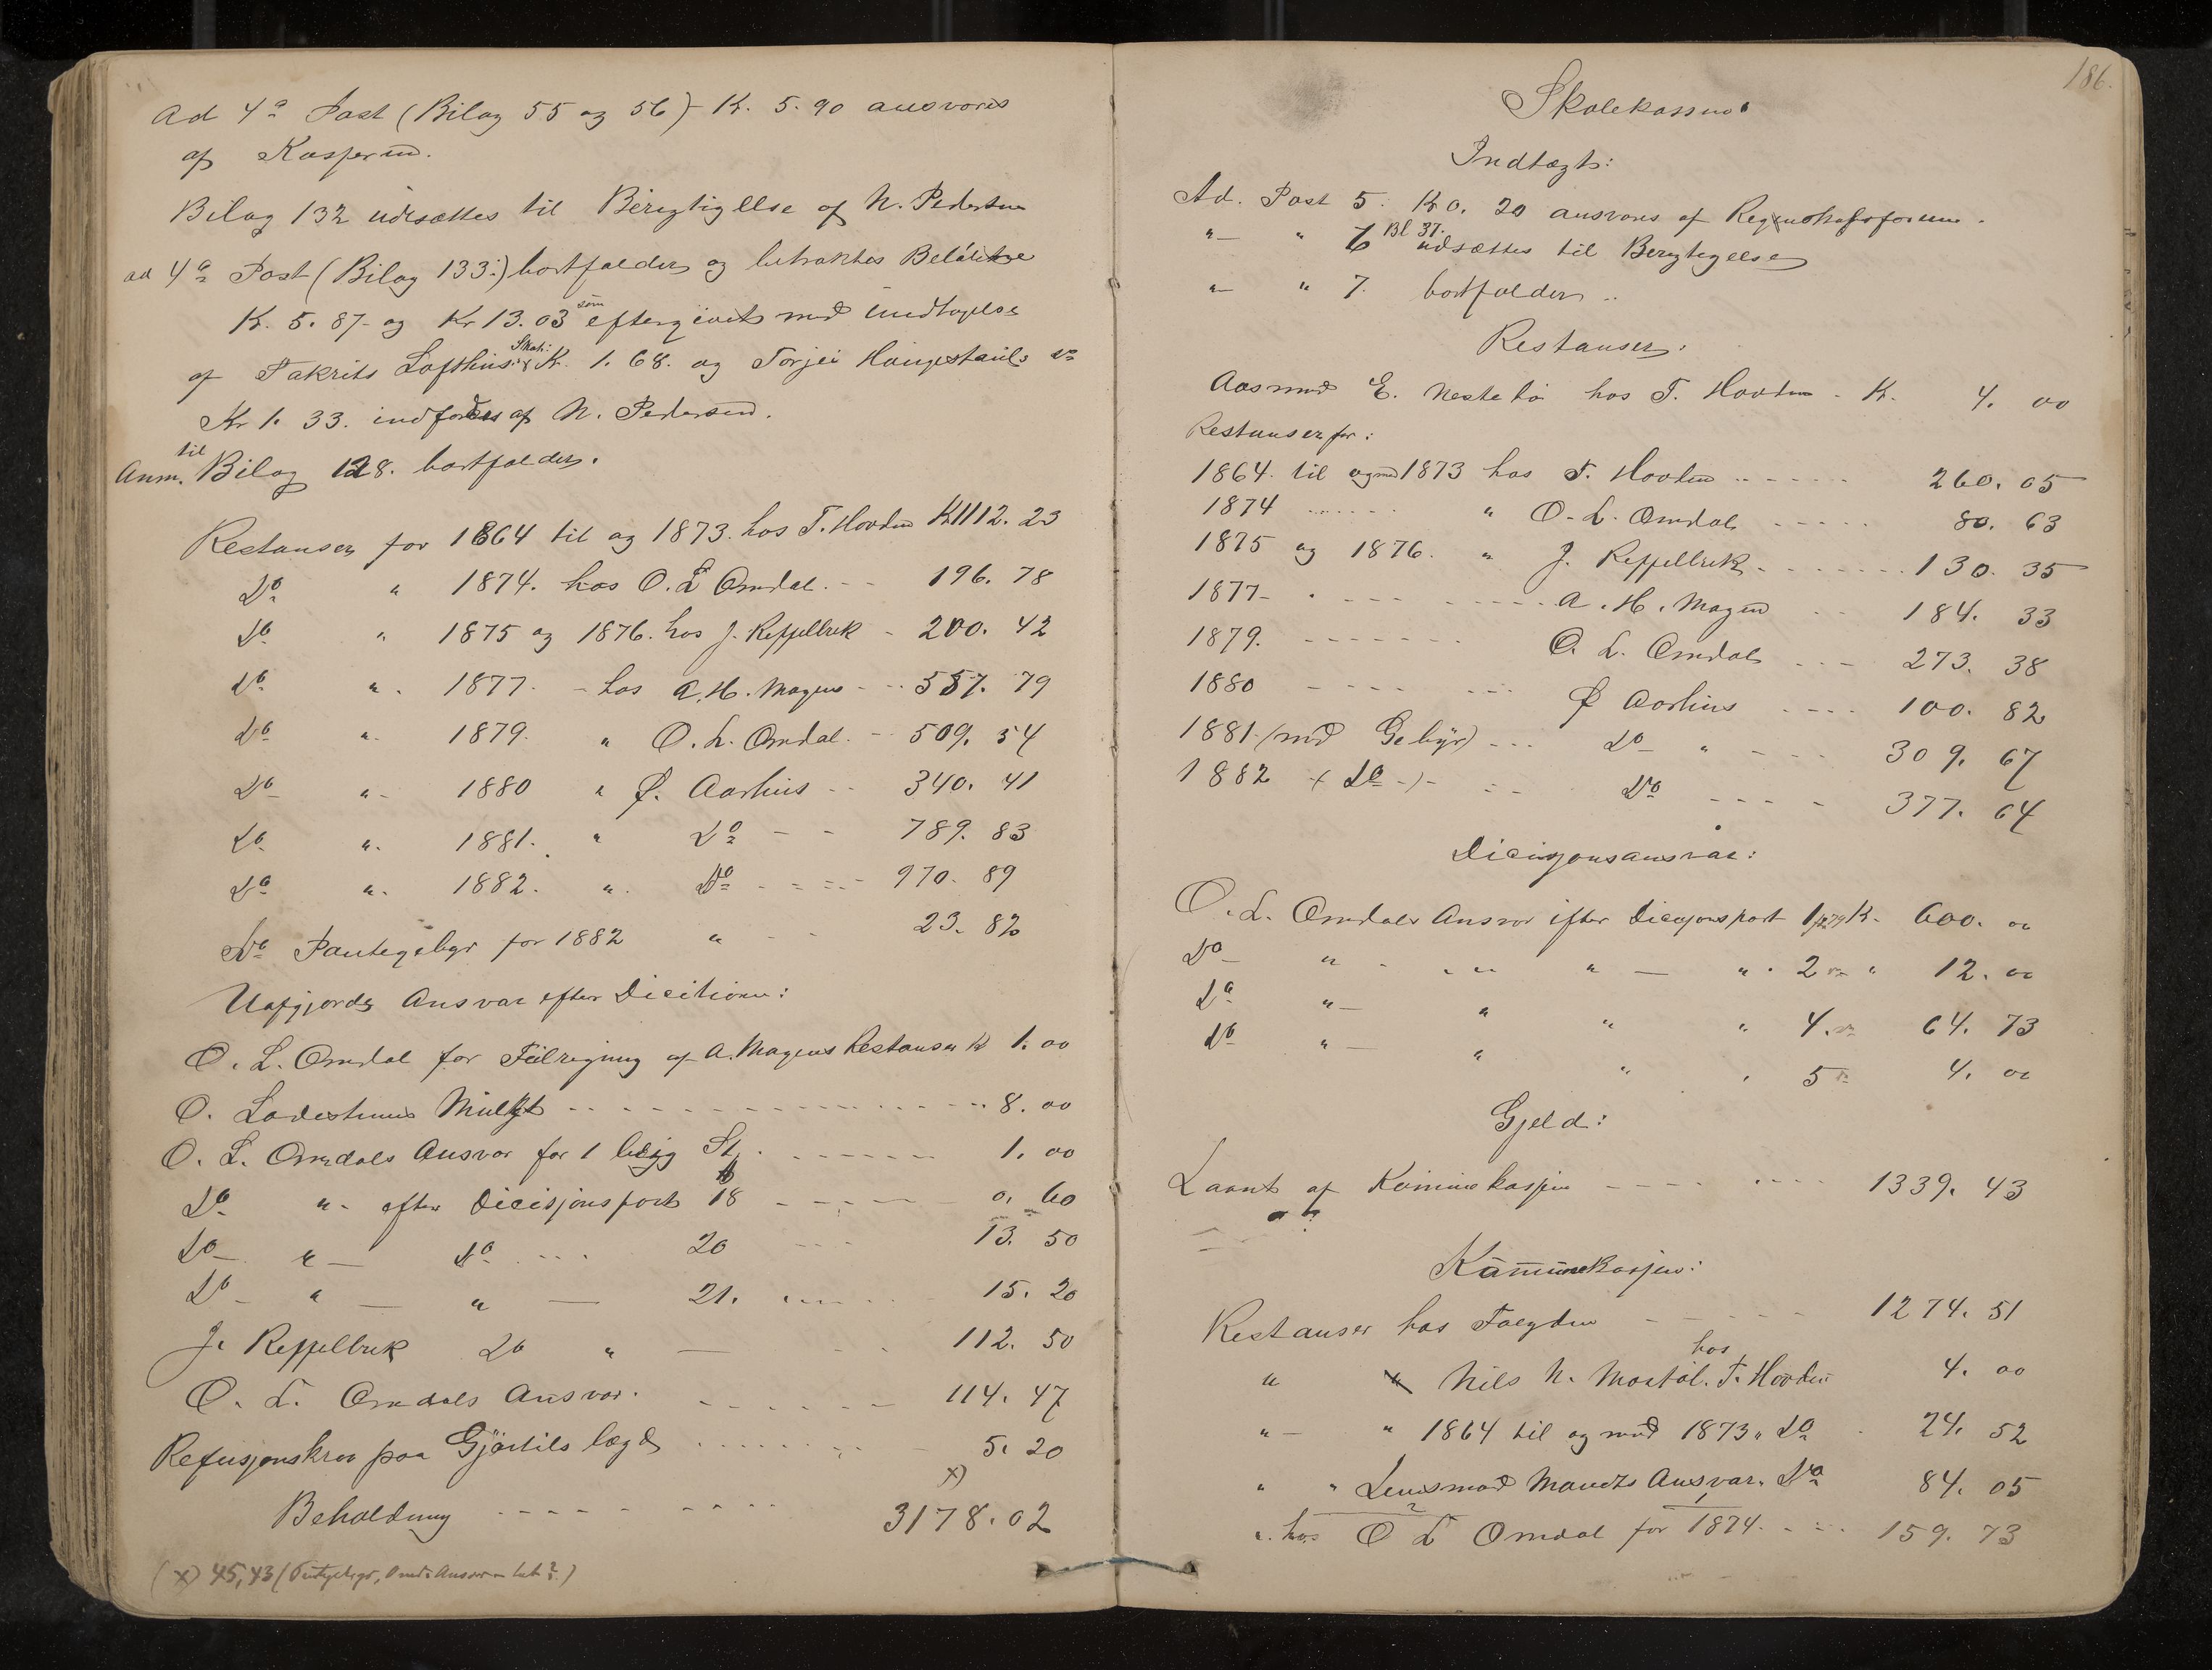 Ad 4de Post (Bilag 55 og 56) K. 5.90 ansvares
af Kasseren.
Bilag 132 udsættes til Berigtigelse af N. Pedersen
ad 4de Post (Bilag 133) bortfalder og betragtes Beløbene
K. 5.87 og Kr 13.03 som eftergivet med Undtagelse
af Takrits Lofthus Skat: K. 1.68. og Torjei Haugestauls Do
Kr 1.33. indfordres af N. Pedersen.
Anm. til Bilag 128. bortfalder.
Restanser for 1864 til og 1873. hos T. Hovden K 1112.23
Do " 1874. hos O. L. Omdal. - - 196.78
Do " 1875 og 1876. hos J. Reppelbrek - 200.42
Do " 1877. - hos A. H. Magens - - 557.79
Do " 1879. " O. L. Omdal. - 509.54
Do " 1880 " Ø. Aarhus - - 340.41
Do " 1881. " Do - - 789.83
Do " 1882. " Do - - - - 970.89
Do Pantegebyr for 1882 " - - 23.82
Uafgjorde Ansvar efter Dicitionen:
O. L. Omdal for A. Magens Restanser K 1.00
O. Mulkt - - - - 8.00
O. L. Omdals Ansvar for 1 St. - - - - 1.00
Do " efter Dicisjonspost 18 - - - - 0.60
Do " Do - - - 20 - - - 13.50
Do " " 21. - - - - 15.20
J. Reppelbrek 20 " - - - 112.50
O. L. Omdals Ansvar. - - - - 114.47
Refusjonskrav paa Gjøstils lægd - - - - 5.20
Beholdning - - - - x) 3178.02
(x) 45,43 (Pantegebyr, Omd. Ansvar)
186.
Skolekassen.
Indtægt:
Ad. Post 5. K 0.20 ansvares af Regnskabsføreren.
" " 6 Bl 37. udsættes til Berigtigelse
" " 7. bortfalder
Restanser:
Aasmund E. Nestebø hos T. Hovden - K. 4.00
Restanser for:
1864 til og med 1873 hos T. Hovden - - - - 260.05
1874 - - - - " O. L. Omdal - - - - 80.63
1875 og 1876. " J. Reppelbrek - - - - 130.35
1877 - - - - A. H. Magens - - 184.33
1879. - - - - O. L. Omdal - - - 273.38
1880 - - - - Ø Aarhus - - - - 100.82
1881 (med Gebyr) - - - Do " - - - 309.67
1882 (Do) - - Do - - - - 377.64
Dicisjonsansvar:
O. L. Omdals Ansvar efter Dicisjonspost 1 K. 600.00
Do " " " 2 " 12.00
Do " " " " 4. 64.73
Do " " " " 5 4.00
Gjeld:
Laant af Kommunekassen - - - - 1339.43
Kommunekassen:
Restanser hos Fogden - - - - 1274.51
" " Nils N. Mostøl. hos T. Hovden 4.00
" " 1864 til og med 1873 " Do 24.52
" " Lensmand Mandts Ansvar. Do 84.05
" hos O L Omdal for 1874. - - - 159.73